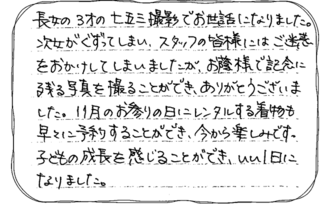 長女の3才の七五三撮影でお世話になりました。
次女がぐずってしまい、スタッフの皆様にはご迷惑
をおかけしてしまいましたが、お陰様で記念に
残る写真を撮ることができ、ありがとうございま
した。11月のお参りの日にレンタルする着物も
早々に予約することができ、今から楽しみです。
子どもの成長を感じることができ、いい1日に
なりました。